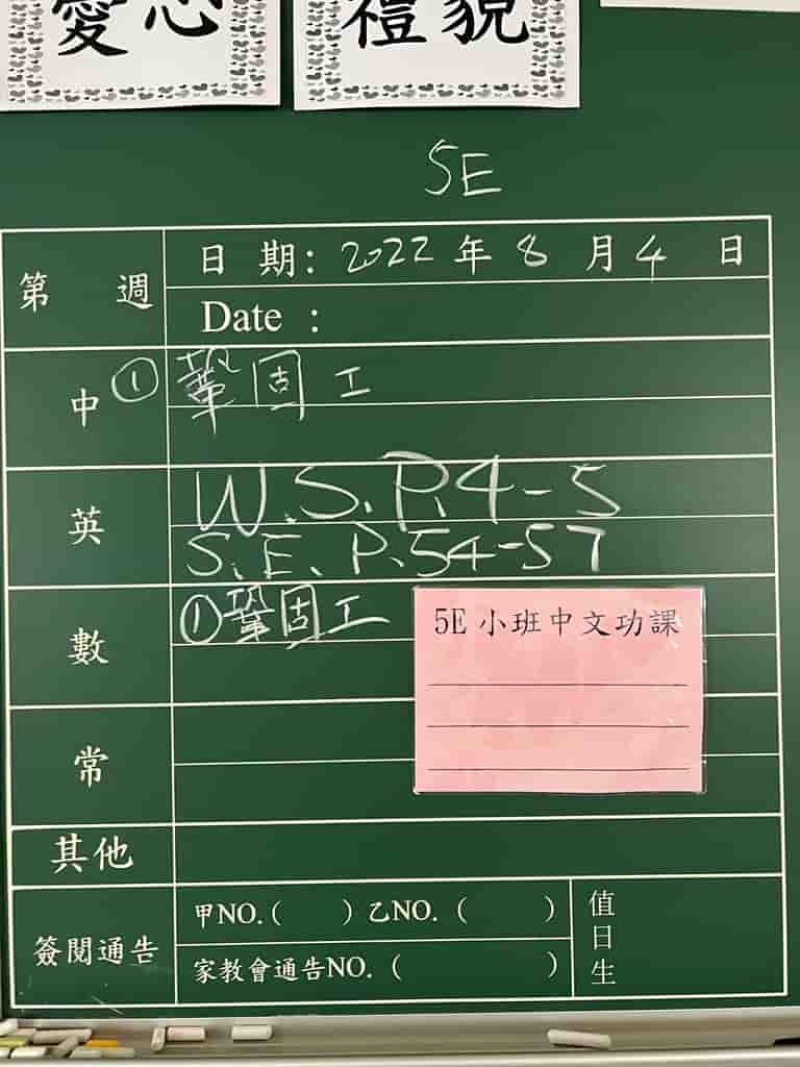 愛心
禮貌
5E
第 週
日 期：2022 年 8 月 4 日
Date :
中
① 鞏固工
英
W.S.P.4-5
S.E.P.54-57
數
①鞏固工
5E 小班中文功課
常
其他
簽閱通告
甲NO.( ) 乙NO.( )
家教會通告NO.( )
值日生